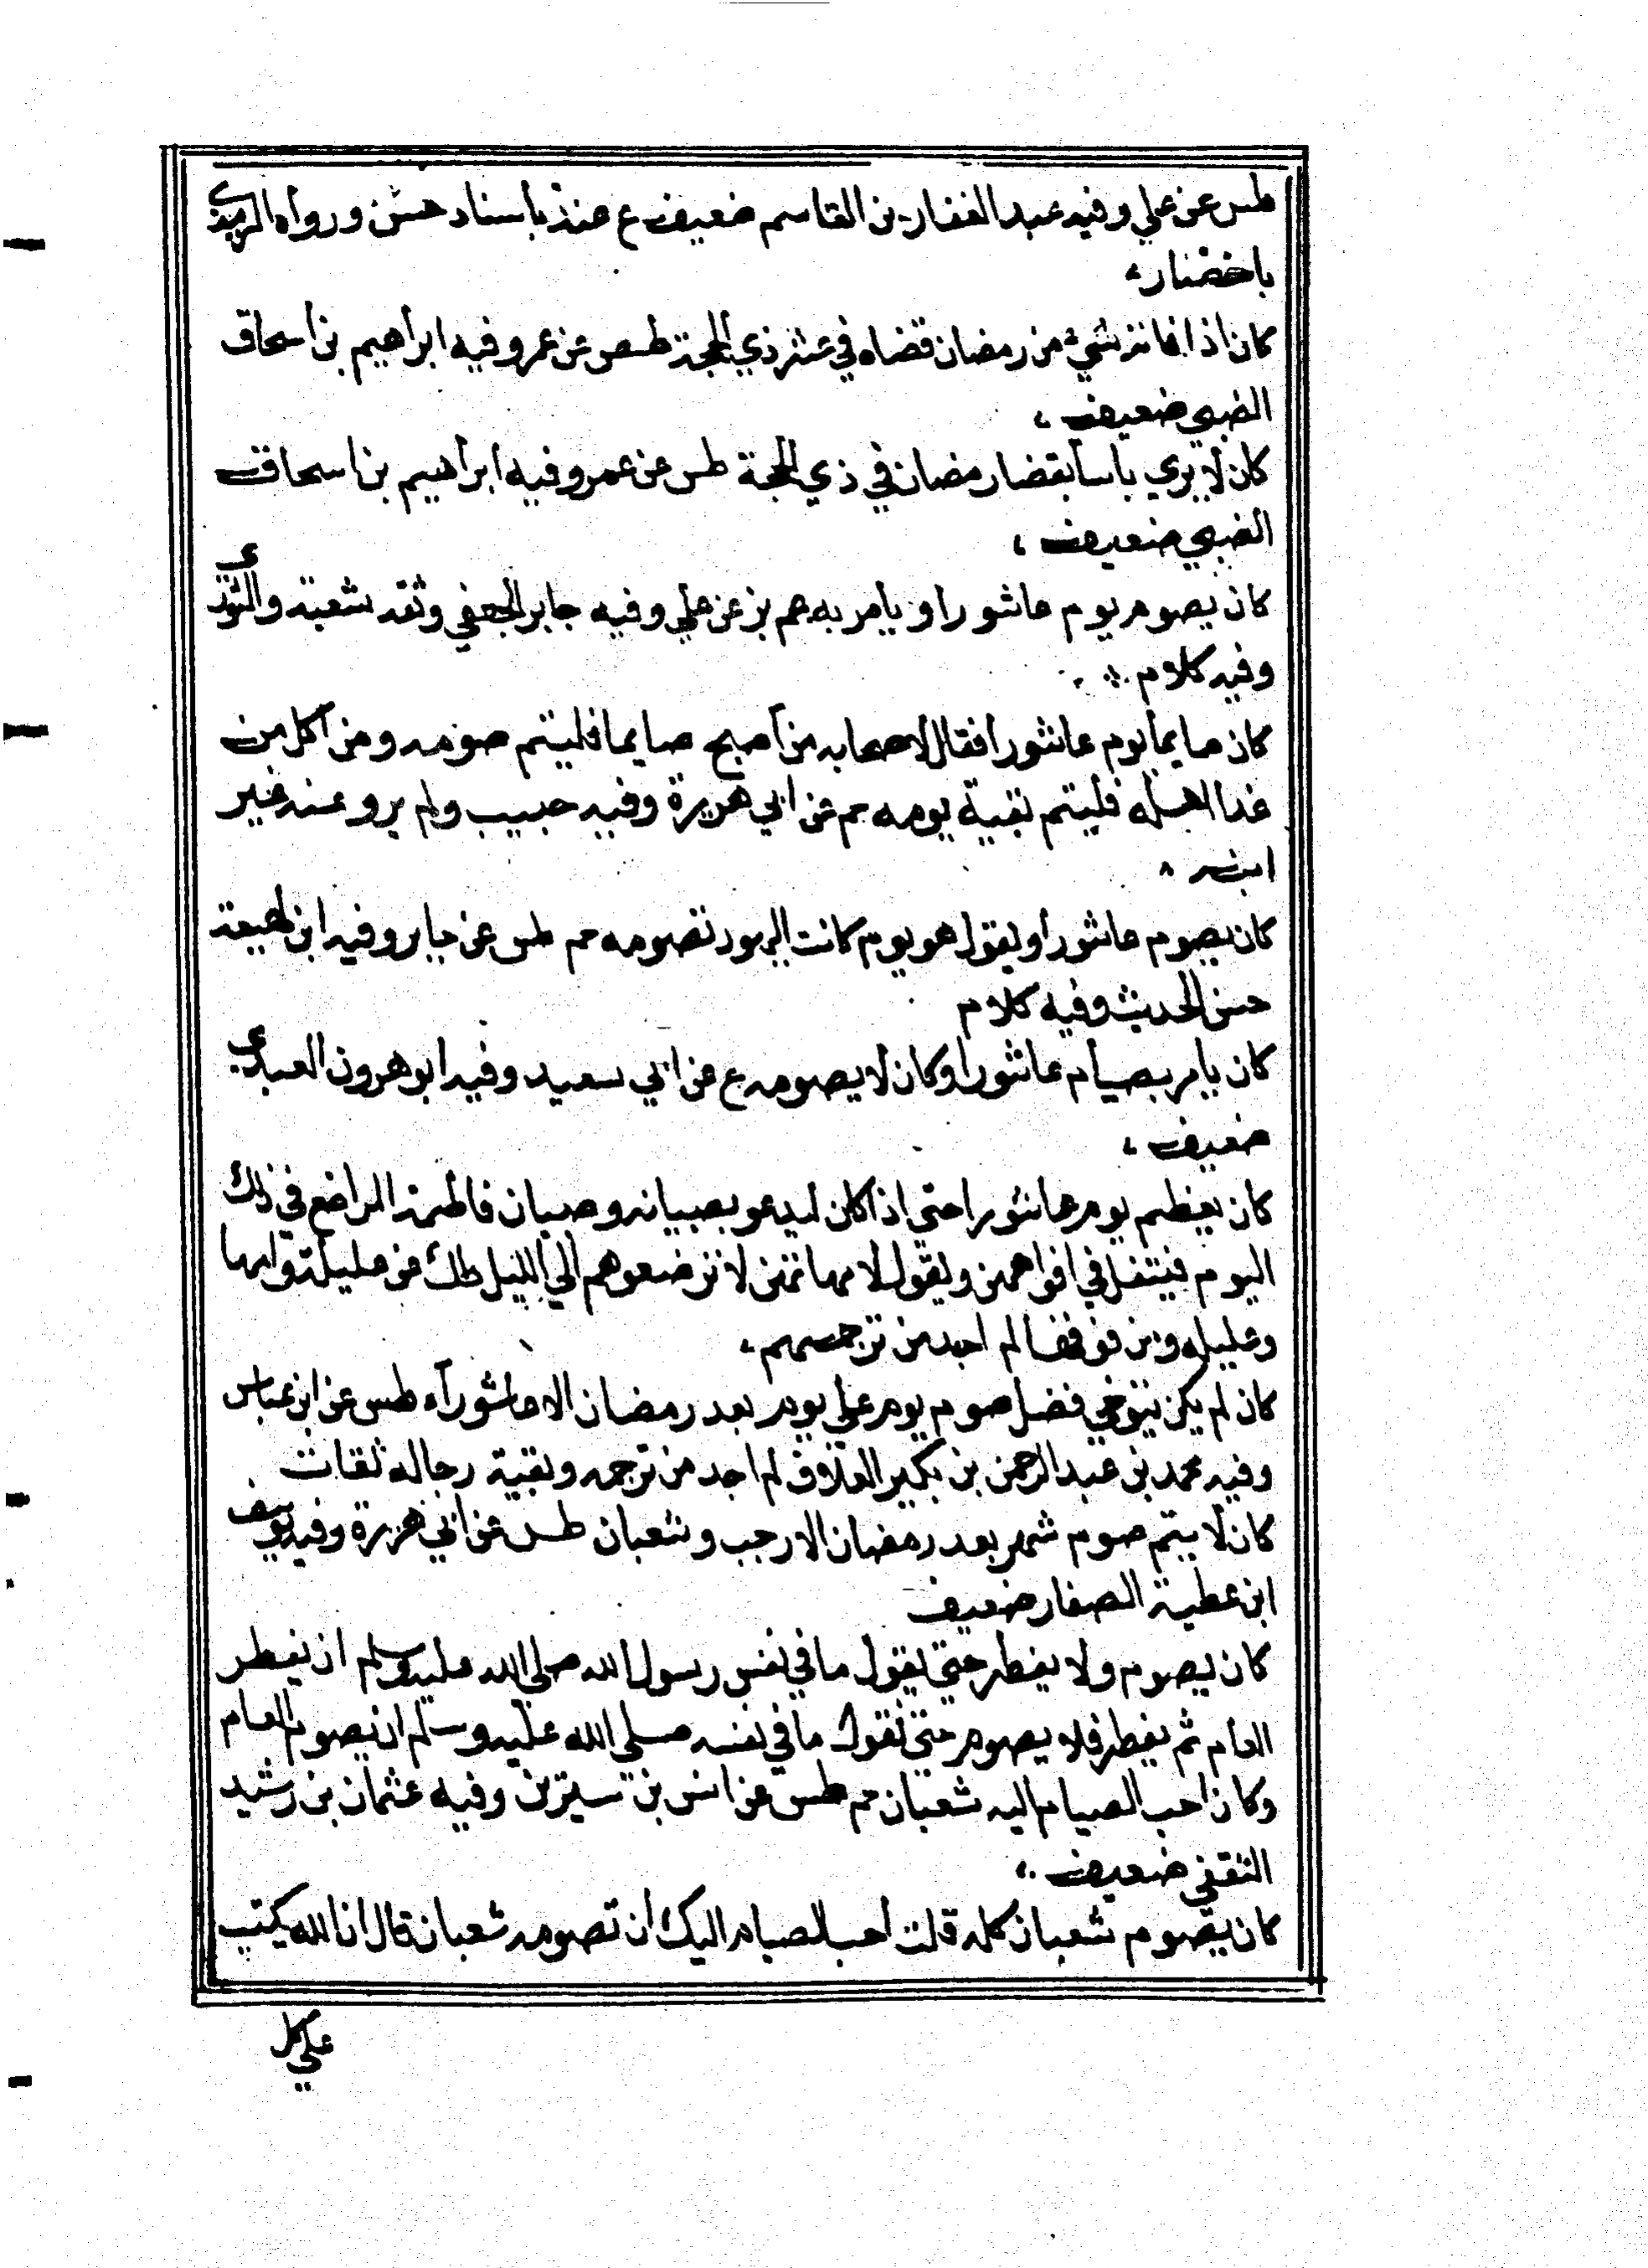 طس عن علي وفيه عبد الغفار بن القاسم ضعيف ع عنه باسناد حسن ورواه الترمذي
باختصار
كان اذا فاته شيء من رمضان قضاه في عشر ذي الحجة طس ص عن عمر وفيه ابراهيم بن اسحاق
الضبي ضعيف
كان لا يري باسا بقضا رمضان في ذي الحجة طس عن عمر وفيه ابراهيم بن اسحاق
الضبي ضعيف
كان يصوم يوم عاشورا ويامر به عم بز عن علي وفيه جابر الجعفي وثقه شعبة والثوري
وفيه كلام
كان صايما يوم عاشورا فقال لاصحابه من اصبح صايما فليتم صومه ومن اكل من
غدا اهله فليتم بقية يومه حم عن ابي هريرة وفيه حبيب ولم يرو عنه غير
ابنه
كان يصوم عاشورا ويقول هو يوم كانت اليهود تصومه حم طس عن جابر وفيه ابن لهيعة
حسن الحديث وفيه كلام
كان يامر بصيام عاشورا وكان لا يصومه ع عن ابي سعيد وفيه ابو هرون العبدي
ضعيف
كان يعظم يوم عاشورا حتي اذا كان ليدعو بصبيانه وصبيان فاطمة المراضع في ذلك
اليوم فيتفل في افواههن ويقول لامهاتهن لا ترضعوهم الي الليل طك عن عليلة وامها
وعليله ومن فوقها لم اجد من ترجمهم
كان لم يكن يتوخي فضل صوم يوم علي يوم بعد رمضان الا عاشورآء طس عن ابن عباس
وفيه محمد بن عبد الرحمن بن بكير العلاف لم اجد من ترجمه وبقية رجاله ثقات
كان لا يتم صوم شهر بعد رمضان الا رجب وشعبان طس عن ابي هريرة وفيه يوسف
ابن عطية الصفار ضعيف
كان يصوم ولا يفطر حتي يقول ما في نفس رسول الله صلي الله عليه وسلم ان يفطر
العام ثم يفطر فلا يصوم حتي نقول ما في نفسه صلي الله عليه وسلم ان يصوم العام
وكان احب الصيام اليه شعبان حم طس عن انس بن سيرين وفيه عثمان بن رشيد
الثقفي ضعيف
كان يصوم شعبان كله قلت احب الصيام اليك ان تصومه شعبان قال ان الله يكتب
علي كل